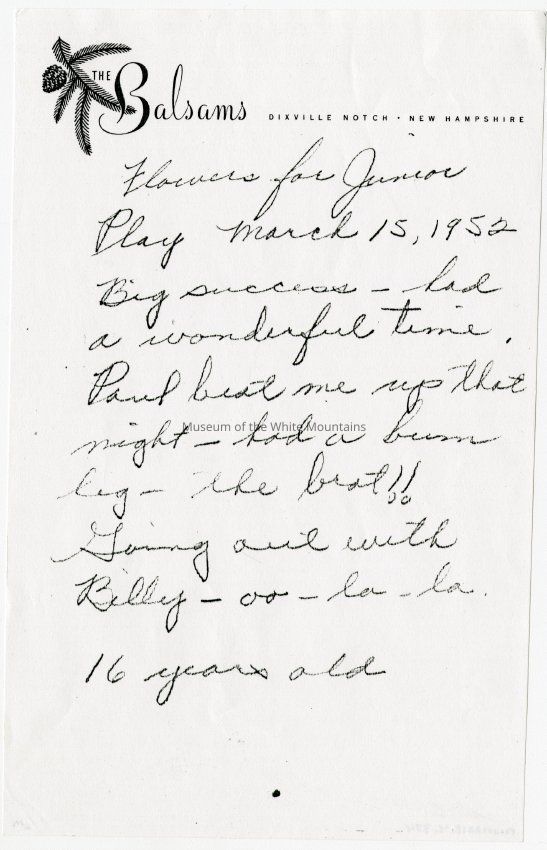 THE Balsams DIXVILLE NOTCH · NEW HAMPSHIRE
Flowers for Junior
Play March 15, 1952
Big success - had
a wonderful time.
Paul beat me up that
night - had a bum
Museum of the White Mountains
leg - the brat!!
Going out with
Billy - oo - la - la.
16 years old